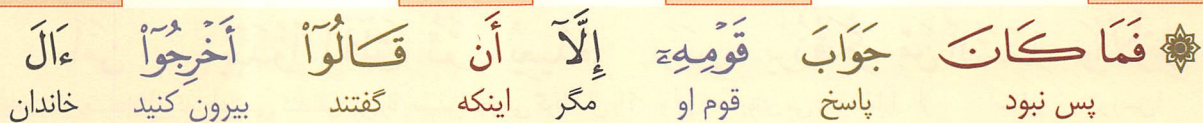 ۞ فَمَا كَانَ جَوَابَ قَوْمِهِۦٓ إِلَّآ أَن قَالُوٓا۟ أَخْرِجُوٓا۟ ءَالَ
پس نبود پاسخ قوم او مگر اینکه گفتند بیرون کنید خاندان